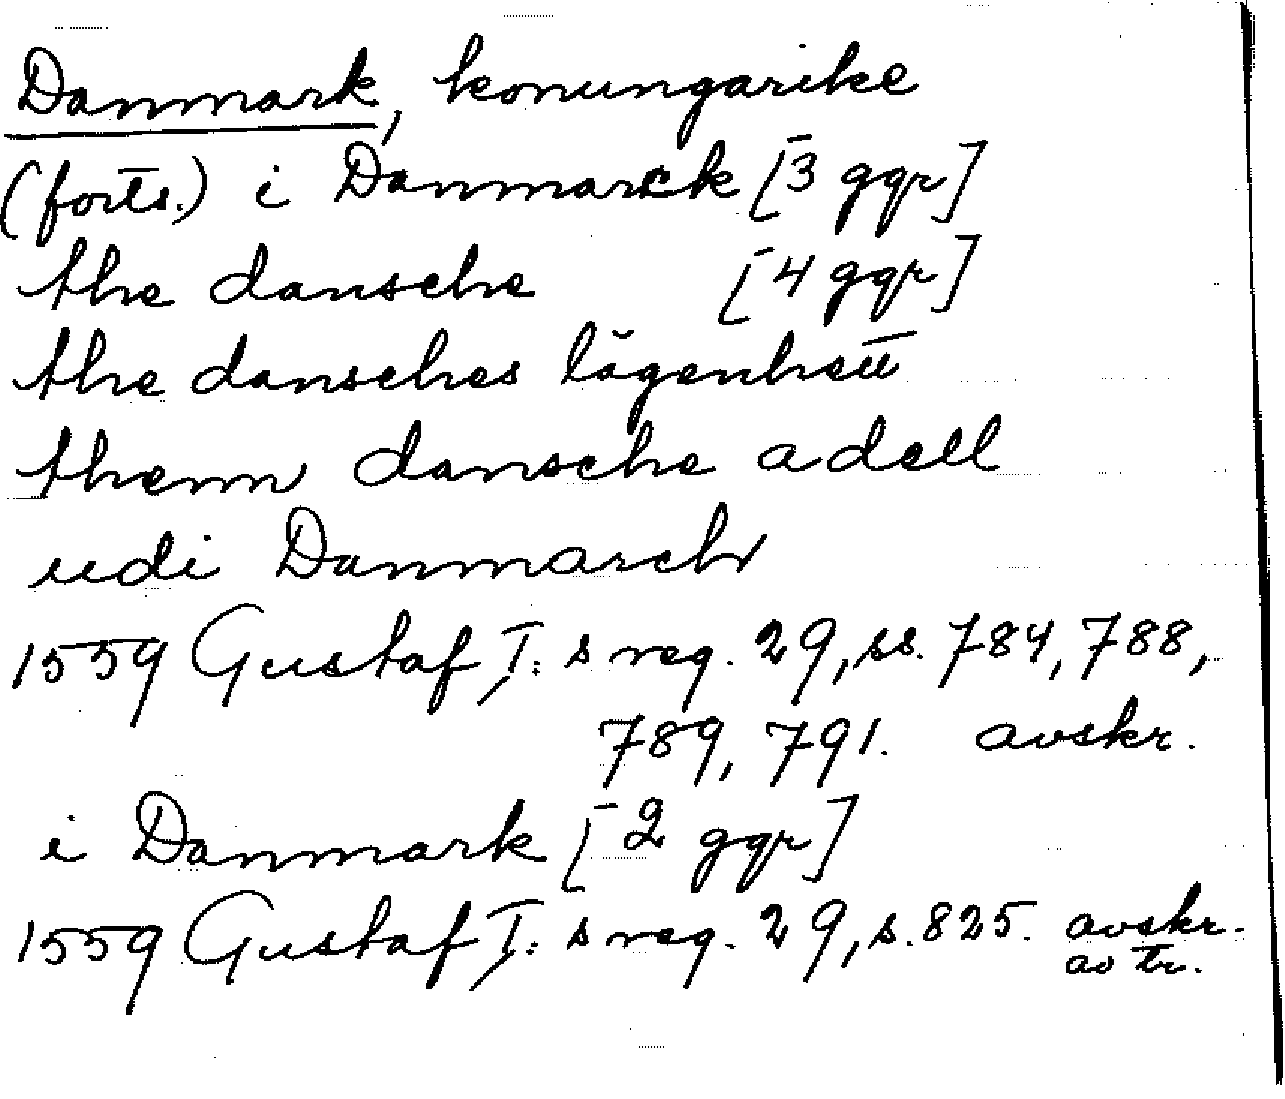 Danmark, konungarike
(forts.) i Danmarck [3 ggr]
the dansche [4 ggr]
the dansches lägenheit
thenn dansche adell
udi Danmarch
1559 Gustaf I:s reg. 29, ss. 784, 788,
789, 791. avskr.
i Danmark [2 ggr]
1559 Gustaf I:s reg. 29, s. 825. avskr.
av tr.